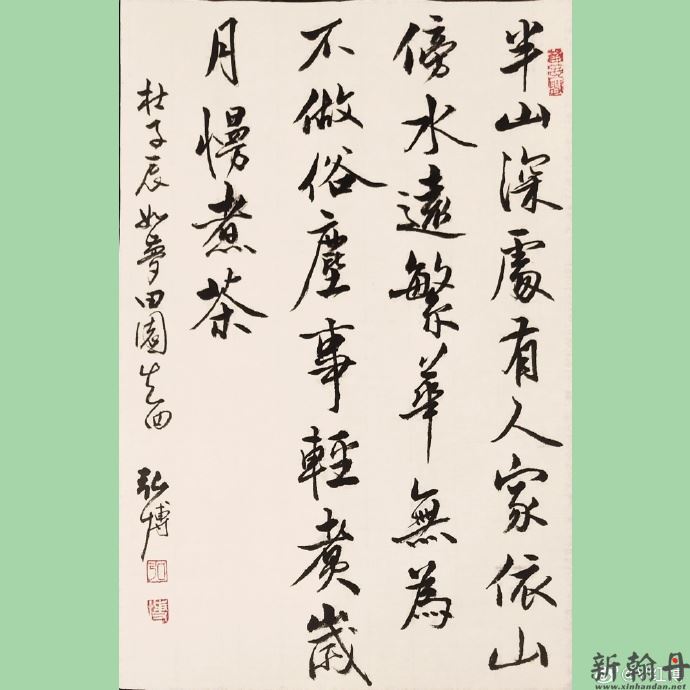 半山深處有人家依山
傍水遠繁華無為
不做俗塵事輕賫歲
月慢煮茶
杜子辰如夢田園四 弘博
新翰丹
www.xinhandan.net